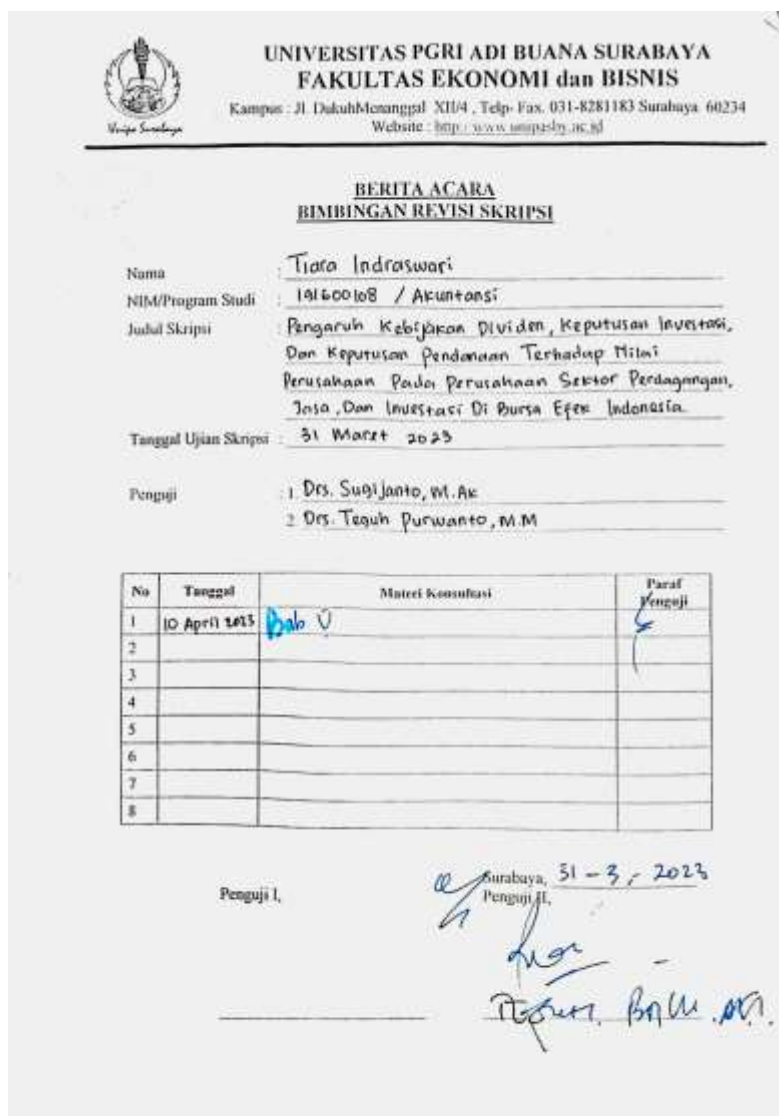 UNIVERSITAS PGRI ADI BUANA SURABAYA
FAKULTAS EKONOMI dan BISNIS
Kampus : Jl. DukuhMenanggal XII/4 , Telp- Fax. 031-8281183 Surabaya 60234
Website : http://www.unipasby.ac.id
Unipa Surabaya
BERITA ACARA
BIMBINGAN REVISI SKRIPSI
Nama : Tiara Indraswari
NIM/Program Studi : 191600108 / Akuntansi
Judul Skripsi : Pengaruh Kebijakan Dividen, Keputusan Investasi,
Dan Keputusan Pendanaan Terhadap Nilai
Perusahaan Pada Perusahaan Sektor Perdagangan,
Jasa, Dan Investasi Di Bursa Efek Indonesia.
Tanggal Ujian Skripsi : 31 Maret 2023
Penguji : 1 Drs. Sugijanto, M.Ak
2 Drs. Teguh Purwanto, M.M
No Tanggal Materi Konsultasi Paraf Penguji
1 10 April 2023 Bab V
2
3
4
5
6
7
8
Surabaya, 31 - 3 - 2023
Penguji I, Penguji II,